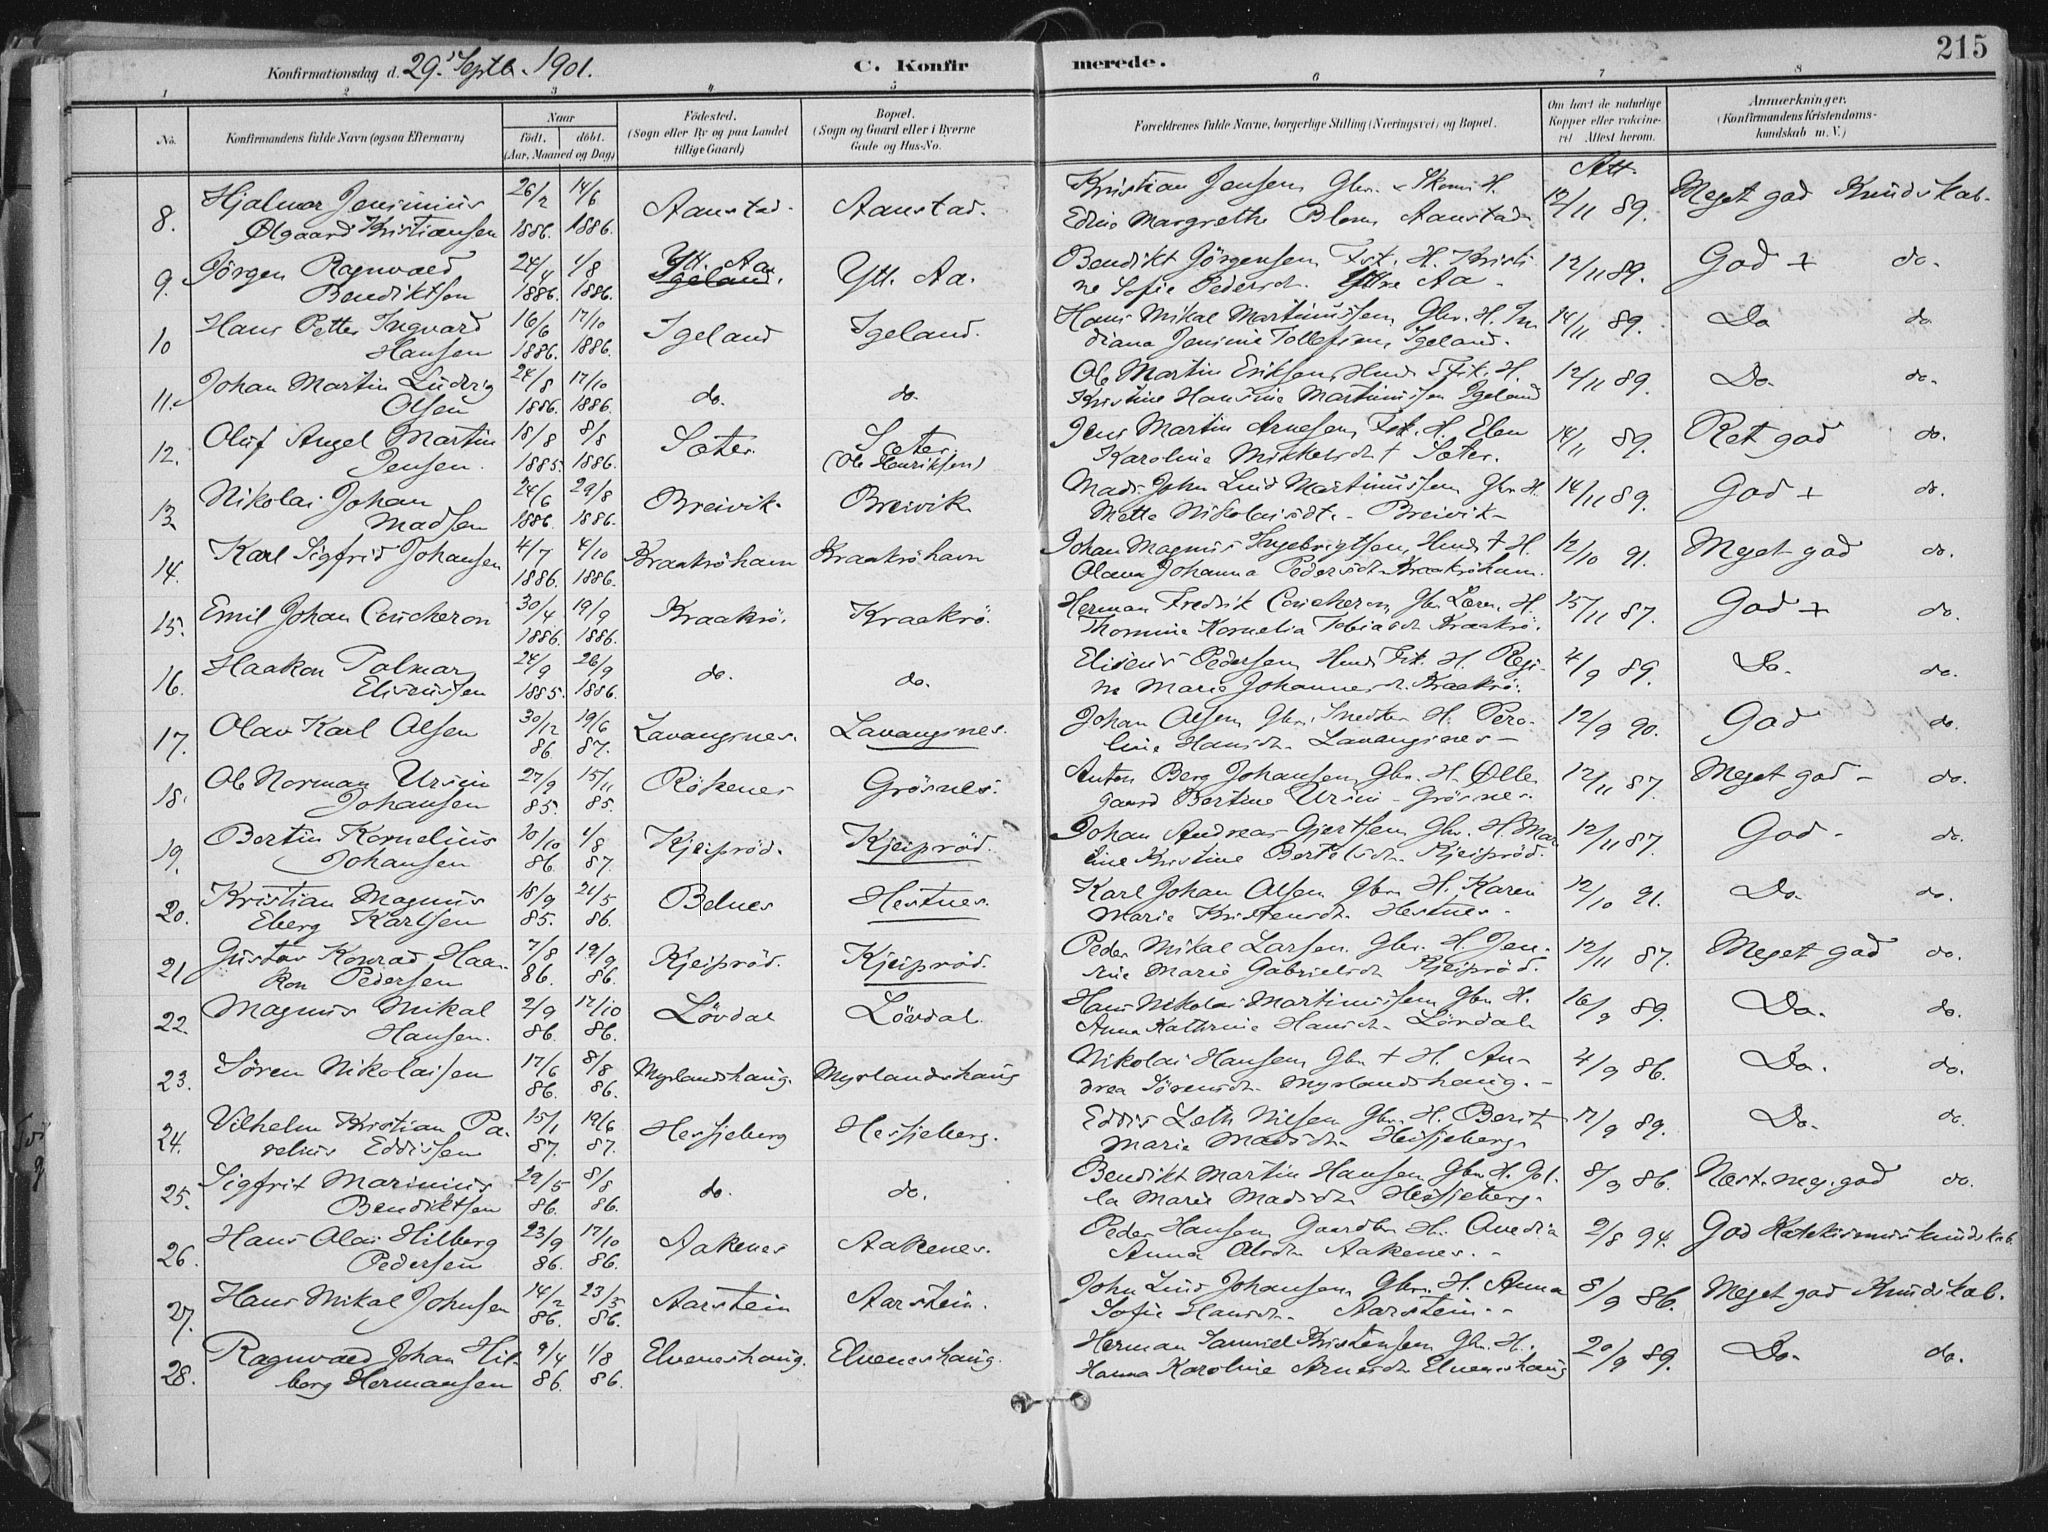 215
Konfirmationsdag d. 29. Septb. 1901. C. Konfirmerede.
1 2 3 4 5 6 7 8
No. Konfirmandens fulde Navn (ogsaa Efternavn) Naar Födt. döbt. (Aar, Maaned og Dag) Födested. (Sogn eller By og paa Landet tillige Gaard) Bopæl. (Sogn og Gaard eller i Byerne Gade og Hus-No. Forældrenes fulde Navne, borgerlige Stilling (Næringsvei) og Bopæl. Om havt de naturlige Kopper eller vaccineret Attest herom. Anmærkninger. (Konfirmandens Kristendomskundskab m. V.)
Att.
8. Hjalmar Jensinius 26/2 14/6 Aanstad. Aanstad. Kristian Jensen, Gbr. H. 12/11 89. Meget god Kundskab.
Ølgaard Kristiansen 1886. 1886. Margrethe Blom, Aanstad
9. Jörgen Ragnvald 24/4 1/8 Ytt. Aa Igeland. Ytt. Aa. Bendikt Jörgensen, Fsk. H. Kristi- 12/11 89. God + do.
Bendiktsen 1886. 1886. ne Sofie Pedersdt. Yttre Aa
10 Hans Petter Ingvard 16/6 17/10 Igeland Igeland. Hans Mikal Martinussen, Gbr. H. In- 14/11 89. Do do
Hansen 1886. 1886. diana Jensine Tollefsen, Igeland.
11. Johan Martin Ludvig 24/8 17/10 do. do. Ole Martin Eriksen, Husm. Fsk. H. 12/11 89. Do. do.
Olsen 1886. 1886. Kristine Hansine Martinussen Igeland
12. Oluf Angel Martin 18/8 8/8 Sæter. Sæter. Jens Martin Arnesen, Fsk. H. Elen 14/11 89. Ret god do.
Jensen. 1885. 1886. (Ole Henriksen) Karoline Mikkelsdt + Sæter.
13. Nikolai Johan 24/6 29/8 Breivik. Breivik Mads John Lind Martinussen Gbr. H. 14/11 89. God + do.
Madsen 1886. 1886. Mette Nikolaisdt. - Breivik
14. Karl Sigfrid Johansen 4/7 4/10 Kraakröhavn Kraakröhavn Johan Magnus Ingebrigtsen, Husm + H. 12/10 91. Meget god do.
1886. 1886. Olava Johanna Pedersdt. Kraakröhavn.
15. Emil Johan Coucheron 30/4 19/9 Kraakrö. Kraakrö. Herman Fredrik Coucheron, Gbr. Lærer, H. 15/11 87. God + do.
1886. 1886. Thomine Kornelia Tobiasdt Kraakrö.
16. Haakon Tolmar 24/9 26/9 do. do. Eliseus Pedersen, Husm Fsk. H. Regi- 4/9 89. Do. do.
Eliseussen 1885. 1886. ne Marie Johannesdt. Kraakrö.
17. Olav Karl Olsen 30/12 19/6 Lavangsnes. Lavangsnes. Johan Olsen, Gbr. Snedker H. Pero- 12/9 90. God do.
86 87. line Hansdt. Lavangsnes
18. Ole Norman Ursin 27/9 15/11 Rökenes Grösnes. Anton Berg Johansen, Gbr. H. Ölle- 12/11 87. Meget god - do.
Johansen 85. 85. gaard Bertine Ursin - Grösnes.
19. Bertin Kornelius 10/10 1/8 Kjeipröd. Kjeipröd. Johan Andreas Gjertsen, Gbr. H. Mar- 12/11 87. God - do.
Johansen 86. 87. Kristine Bertelsdt. Kjeipröd.
20. Kristian Magnus 18/9 21/5 Belnes Hestnes. Karl Johan Olsen Gbr. H. Karen 12/10 91. Do. do.
Eberg Karlsen 85. 86. Marie Kristensdt. Hestnes.
21 Gustav Konrad Haa- 7/8 19/9 Kjeipröd. Kjeipröd. Peder Mikal Larsen. Gbr. H. Jen- 12/11 87. Meget god do.
kon Pedersen 86. 86. sine Marie Gabrielsdt. Kjeipröd.
22. Magnus Mikal 2/9 17/10 Lövdal Lövdal. Hans Nikolai Martinussen Gbr. H. 16/9 89. Do. do.
Hansen. 86. 86. Anna Kathrine Hansdt. Lövdal
23. Sören Nikolaisen 17/6 8/8 Myrlandshaug. Myrlandshaug Nikolai Hansen, Gbr. + H. An- 4/9 86. Do. do.
86. 86. drea Sörensdt. Myrlandshaug. -
24. Vilhelm Kristian Pa- 15/1 19/6 Hessjeberg Hessjeberg. Eddis Leth Nilsen Gbr. H. Berit 17/9 89. Do. do.
relius Eddissen 87. 87. Marie Madsdt. Hessjeberg
25. Sigfrit Marinius 29/5 8/8 do. do. Bendikt Martin Hansen, Gbr. H. 8/9 86. Næst. meg. god do.
Bendiktsen 86. 86. Marie Madsdt. Hessjeberg.
26. Hans Olai Hilberg 23/9 17/10 Aakenes Aakenes. Peder Hansen, Gaardbr. H. Avedia 2/8 94. God Katekismuskundskab.
Pedersen 86. 86. Anna Olsdt. Aakenes. -
27. Hans Mikal Johnsen 14/2 23/5 Aarstein Aarstein. John Lind Johansen, Gbr. H. Anna 8/9 86. Meget god Kundskab.
86. 86. Sofie Hansdt. Aarstein. -
28. Ragnvald Johan Hil- 9/4 1/8 Elveneshaug. Elveneshaug. Herman Samuel Kristensen, Gbr. H. 20/9 89. Do. do.
berg Hermansen 86. 86. Hanna Karoline Arnesdt. Elveneshaug